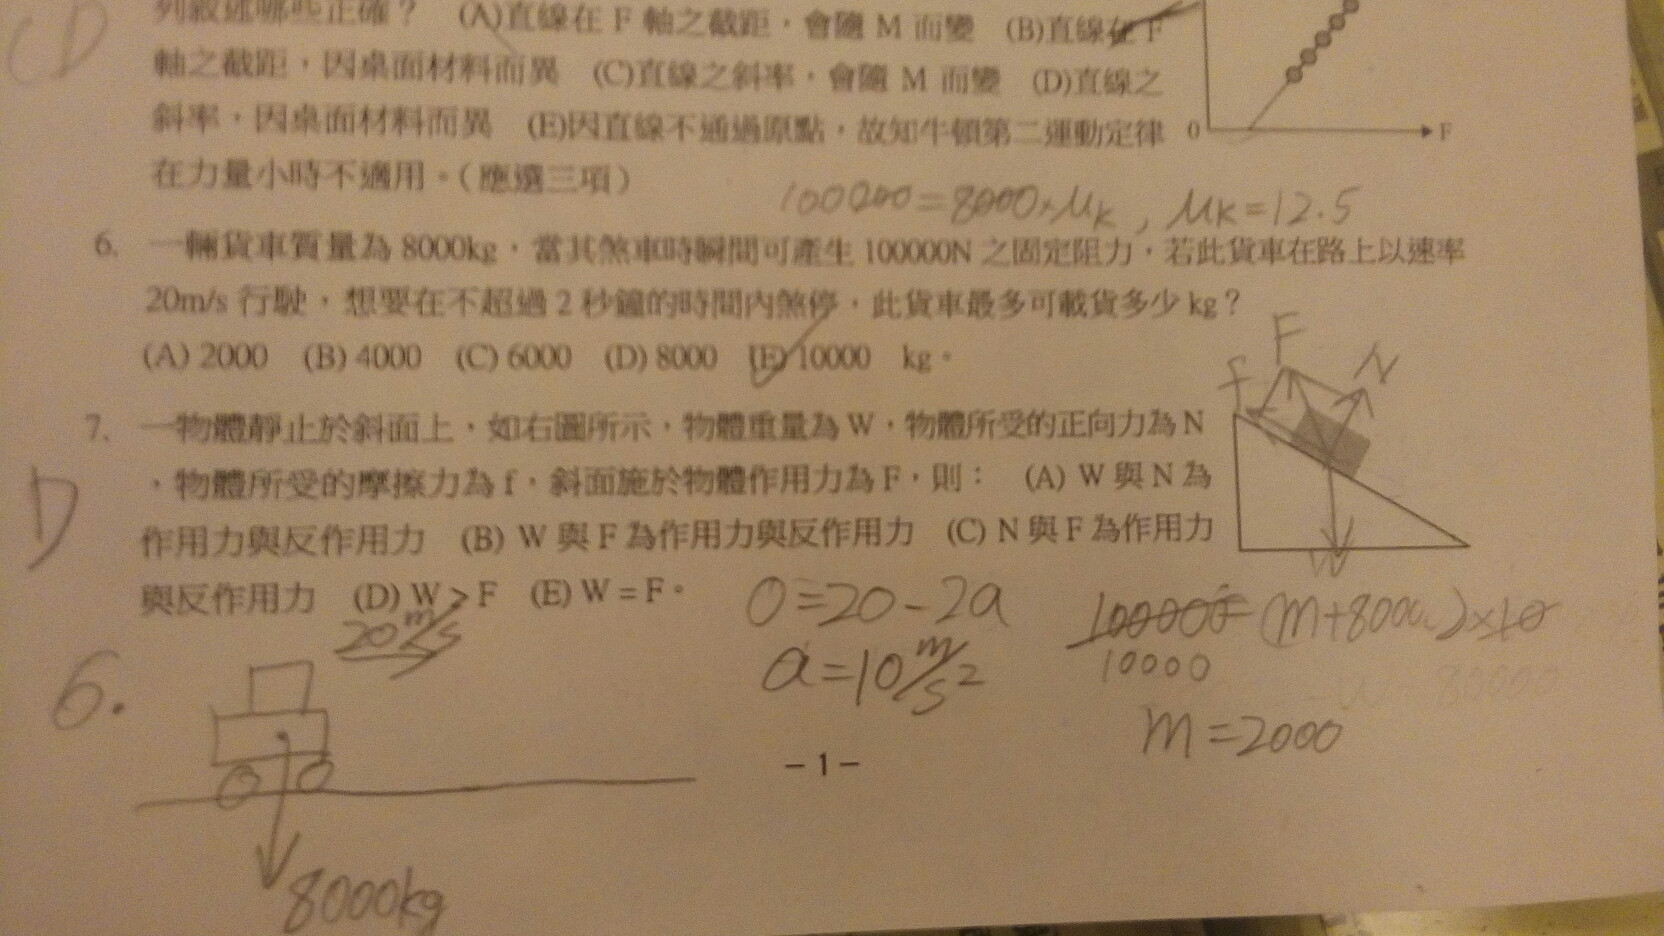 列敘述哪些正確？ (A)直線在 F 軸之截距，會隨 M 而變 (B)直線在 F
軸之截距，因桌面材料而異 (C)直線之斜率，會隨 M 而變 (D)直線之
斜率，因桌面材料而異 (E)因直線不通過原點，故知牛頓第二運動定律
在力量小時不適用。（應選三項）
0 F
100000=8000×μk , μk=12.5
6. 一輛貨車質量為 8000kg，當其煞車時瞬間可產生 100000N 之固定阻力，若此貨車在路上以速率
20m/s 行駛，想要在不超過 2 秒鐘的時間內煞停，此貨車最多可載貨多少 kg？
(A) 2000 (B) 4000 (C) 6000 (D) 8000 (E) 10000 kg。
D
7. 一物體靜止於斜面上，如右圖所示，物體重量為 W，物體所受的正向力為 N
，物體所受的摩擦力為 f，斜面施於物體作用力為 F，則： (A) W 與 N 為
作用力與反作用力 (B) W 與 F 為作用力與反作用力 (C) N 與 F 為作用力
與反作用力 (D) W > F (E) W = F。
f F N
W
6.
20 m/s
8000kg
0=20-2a
a=10 m/s2
100000=(m+8000)×10
10000
m=2000
－1－